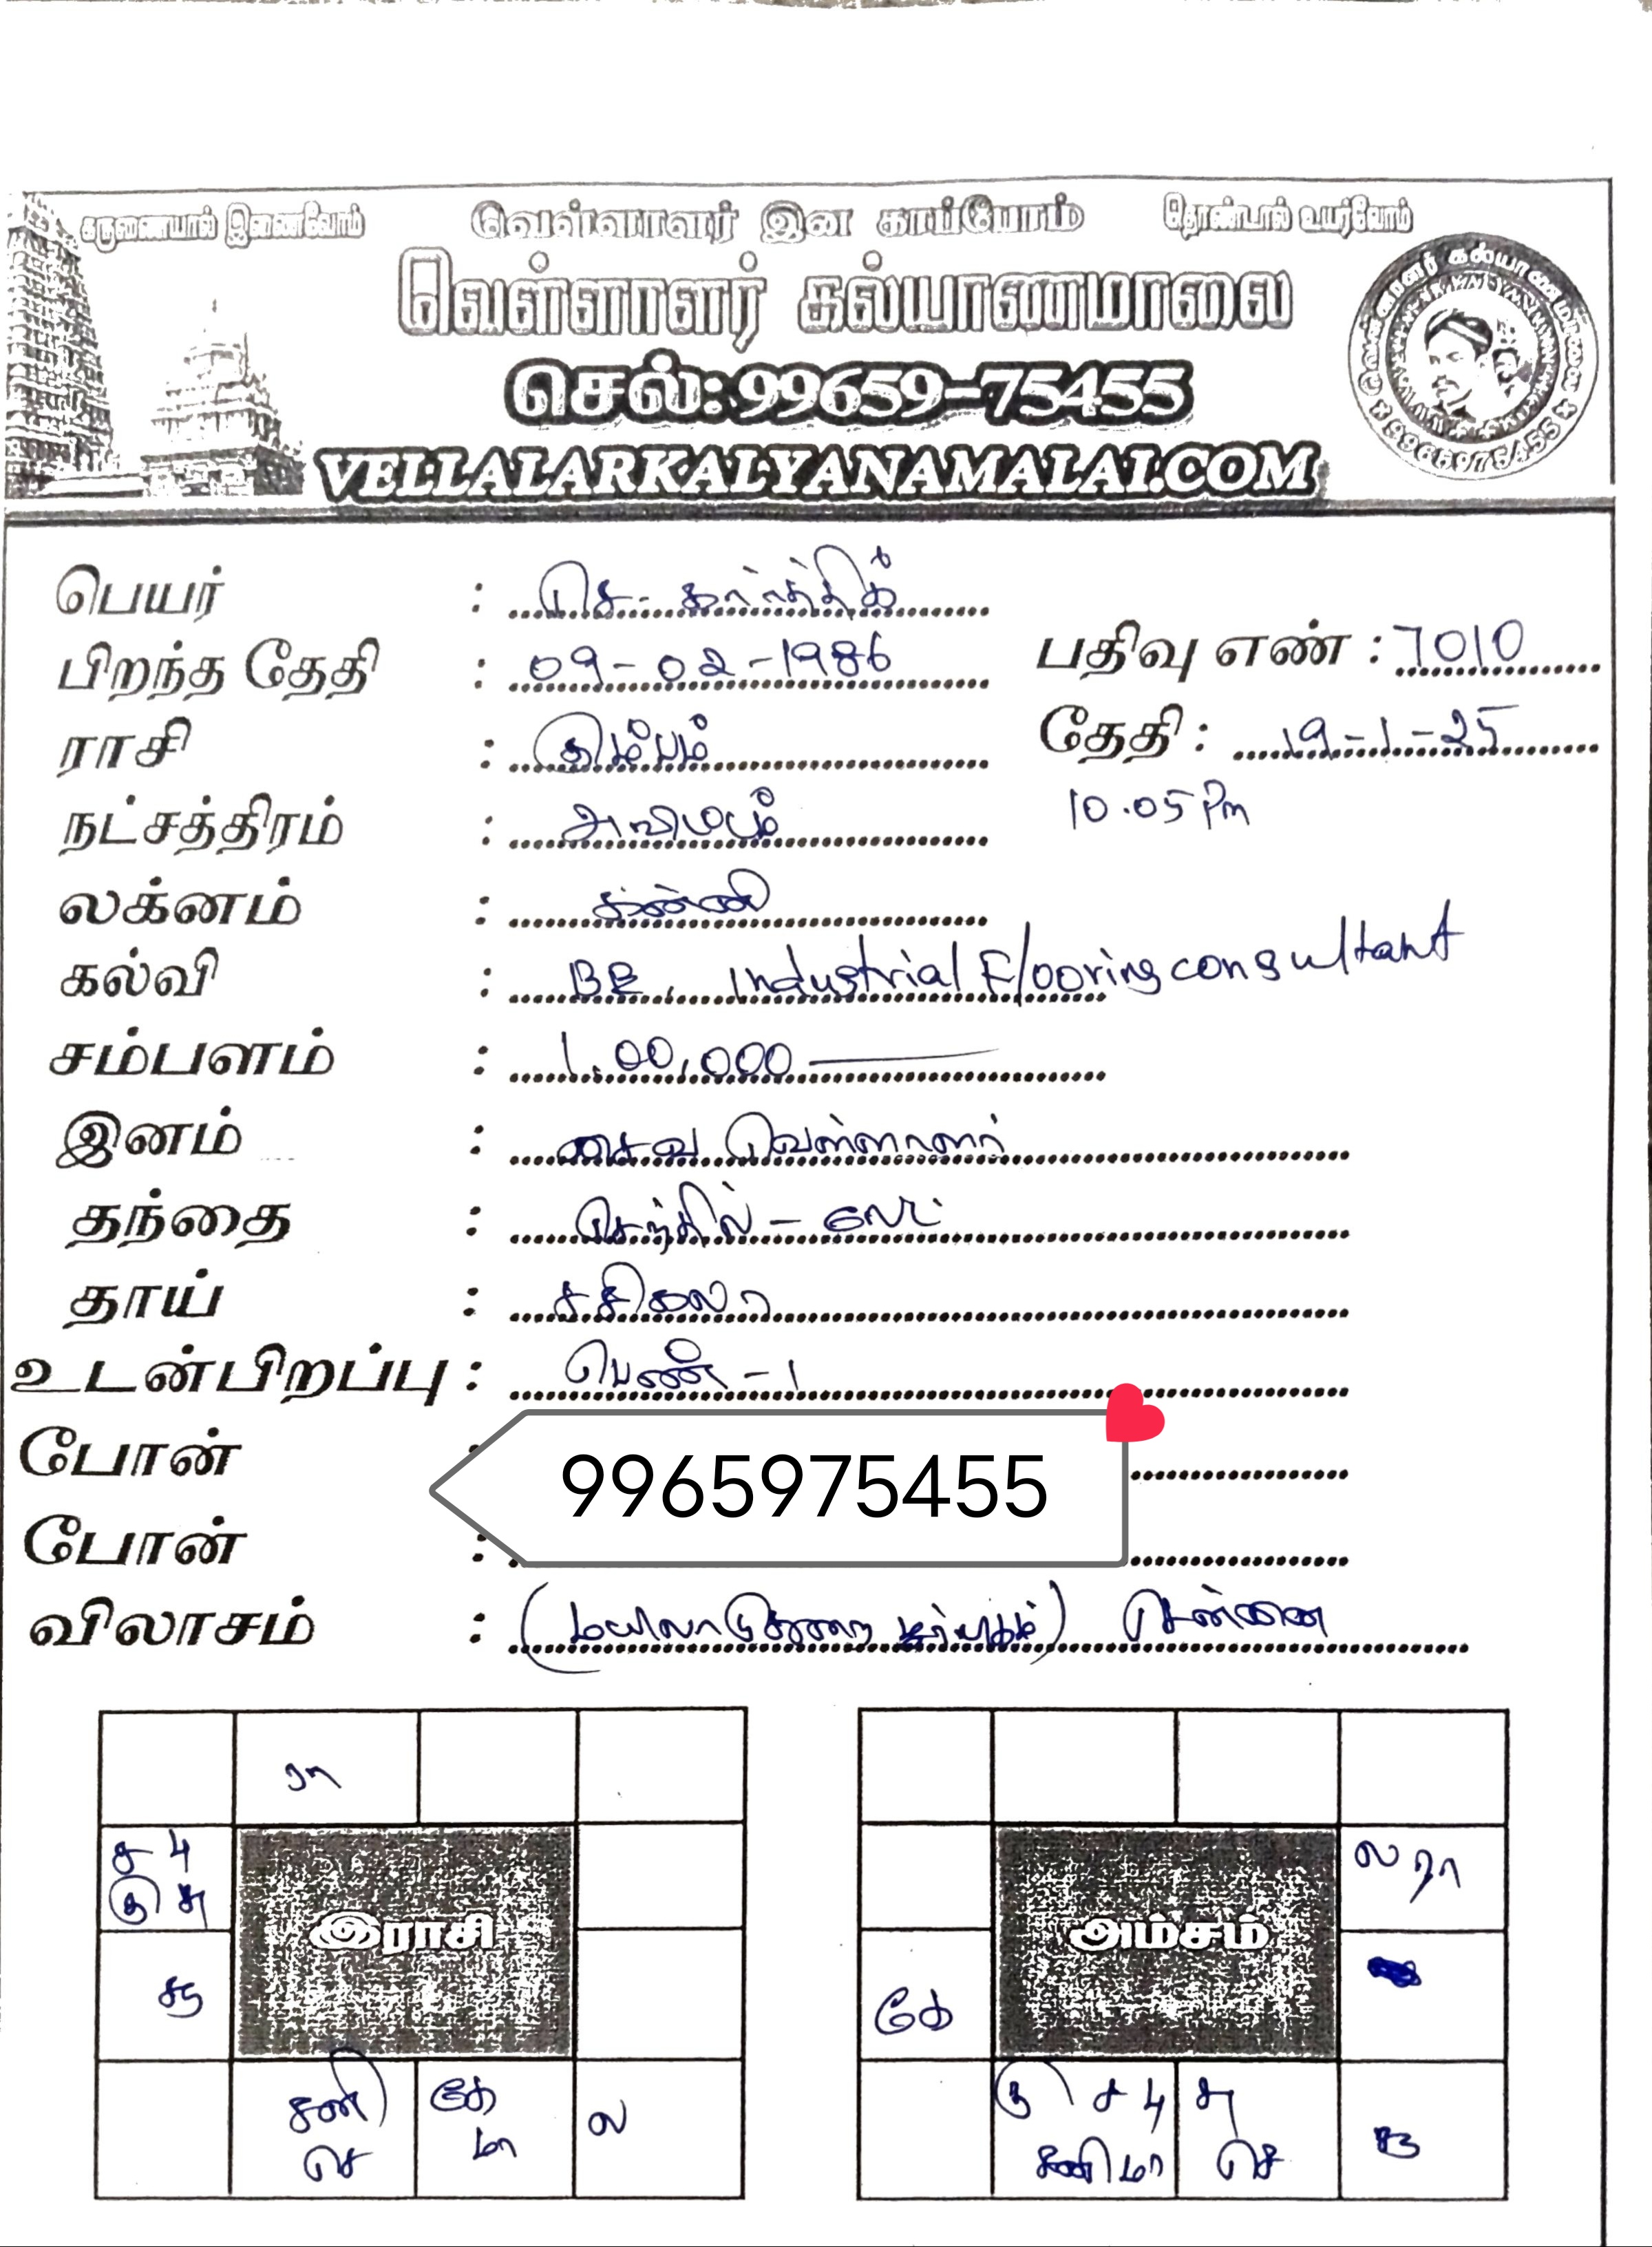 கருணையால் இணைவோம் வெள்ளாளர் இன காப்போம் தொண்டால் உயர்வோம்
வெள்ளாளர் கல்யாணமாலை
செல்: 99659-75455
VELLALARKALYANAMALAI.COM
வெள்ளாளர் கல்யாணமாலை 9965975455
பெயர் : செ. கார்த்திக்
பிறந்த தேதி : 09-02-1986 பதிவு எண் : 7010
ராசி : கும்பம் தேதி : 19-1-25
நட்சத்திரம் : அவிட்டம் 10.05 Pm
லக்னம் : கன்னி
கல்வி : BE, Industrial Flooring consultant
சம்பளம் : 1,00,000
இனம் : சைவ வெள்ளாளர்
தந்தை : செந்தில் - லேட்
தாய் : சசிகலா
உடன்பிறப்பு : பெண் - 1
போன் : 9965975455
போன் :
விலாசம் : (மயிலாடுதுறை பூர்வீகம்) சென்னை
ரா
ச 4 ல ரா
கு சு
இராசி அம்சம்
கே
சனி கே ல கு ச 4 சு
செ மா சனி மா செ